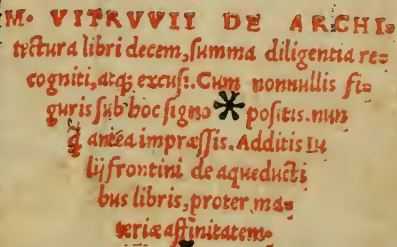 M. VITRVVII DE ARCHI=
tectura libri decem, ſumma diligentia re=
cogniti, atq; excuſi. Cum nonnullis fi=
guris ſub hoc ſigno * poſitis. nun
q̃ antea impræſſis. Additis Iu
lij frontini de aqueducti
bus libris, proter, ma=
teriæ affinitatem.